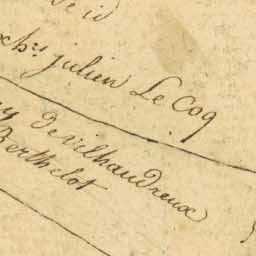 de id
chrs julien Le Coq
De vilhaudreux
Berthelot